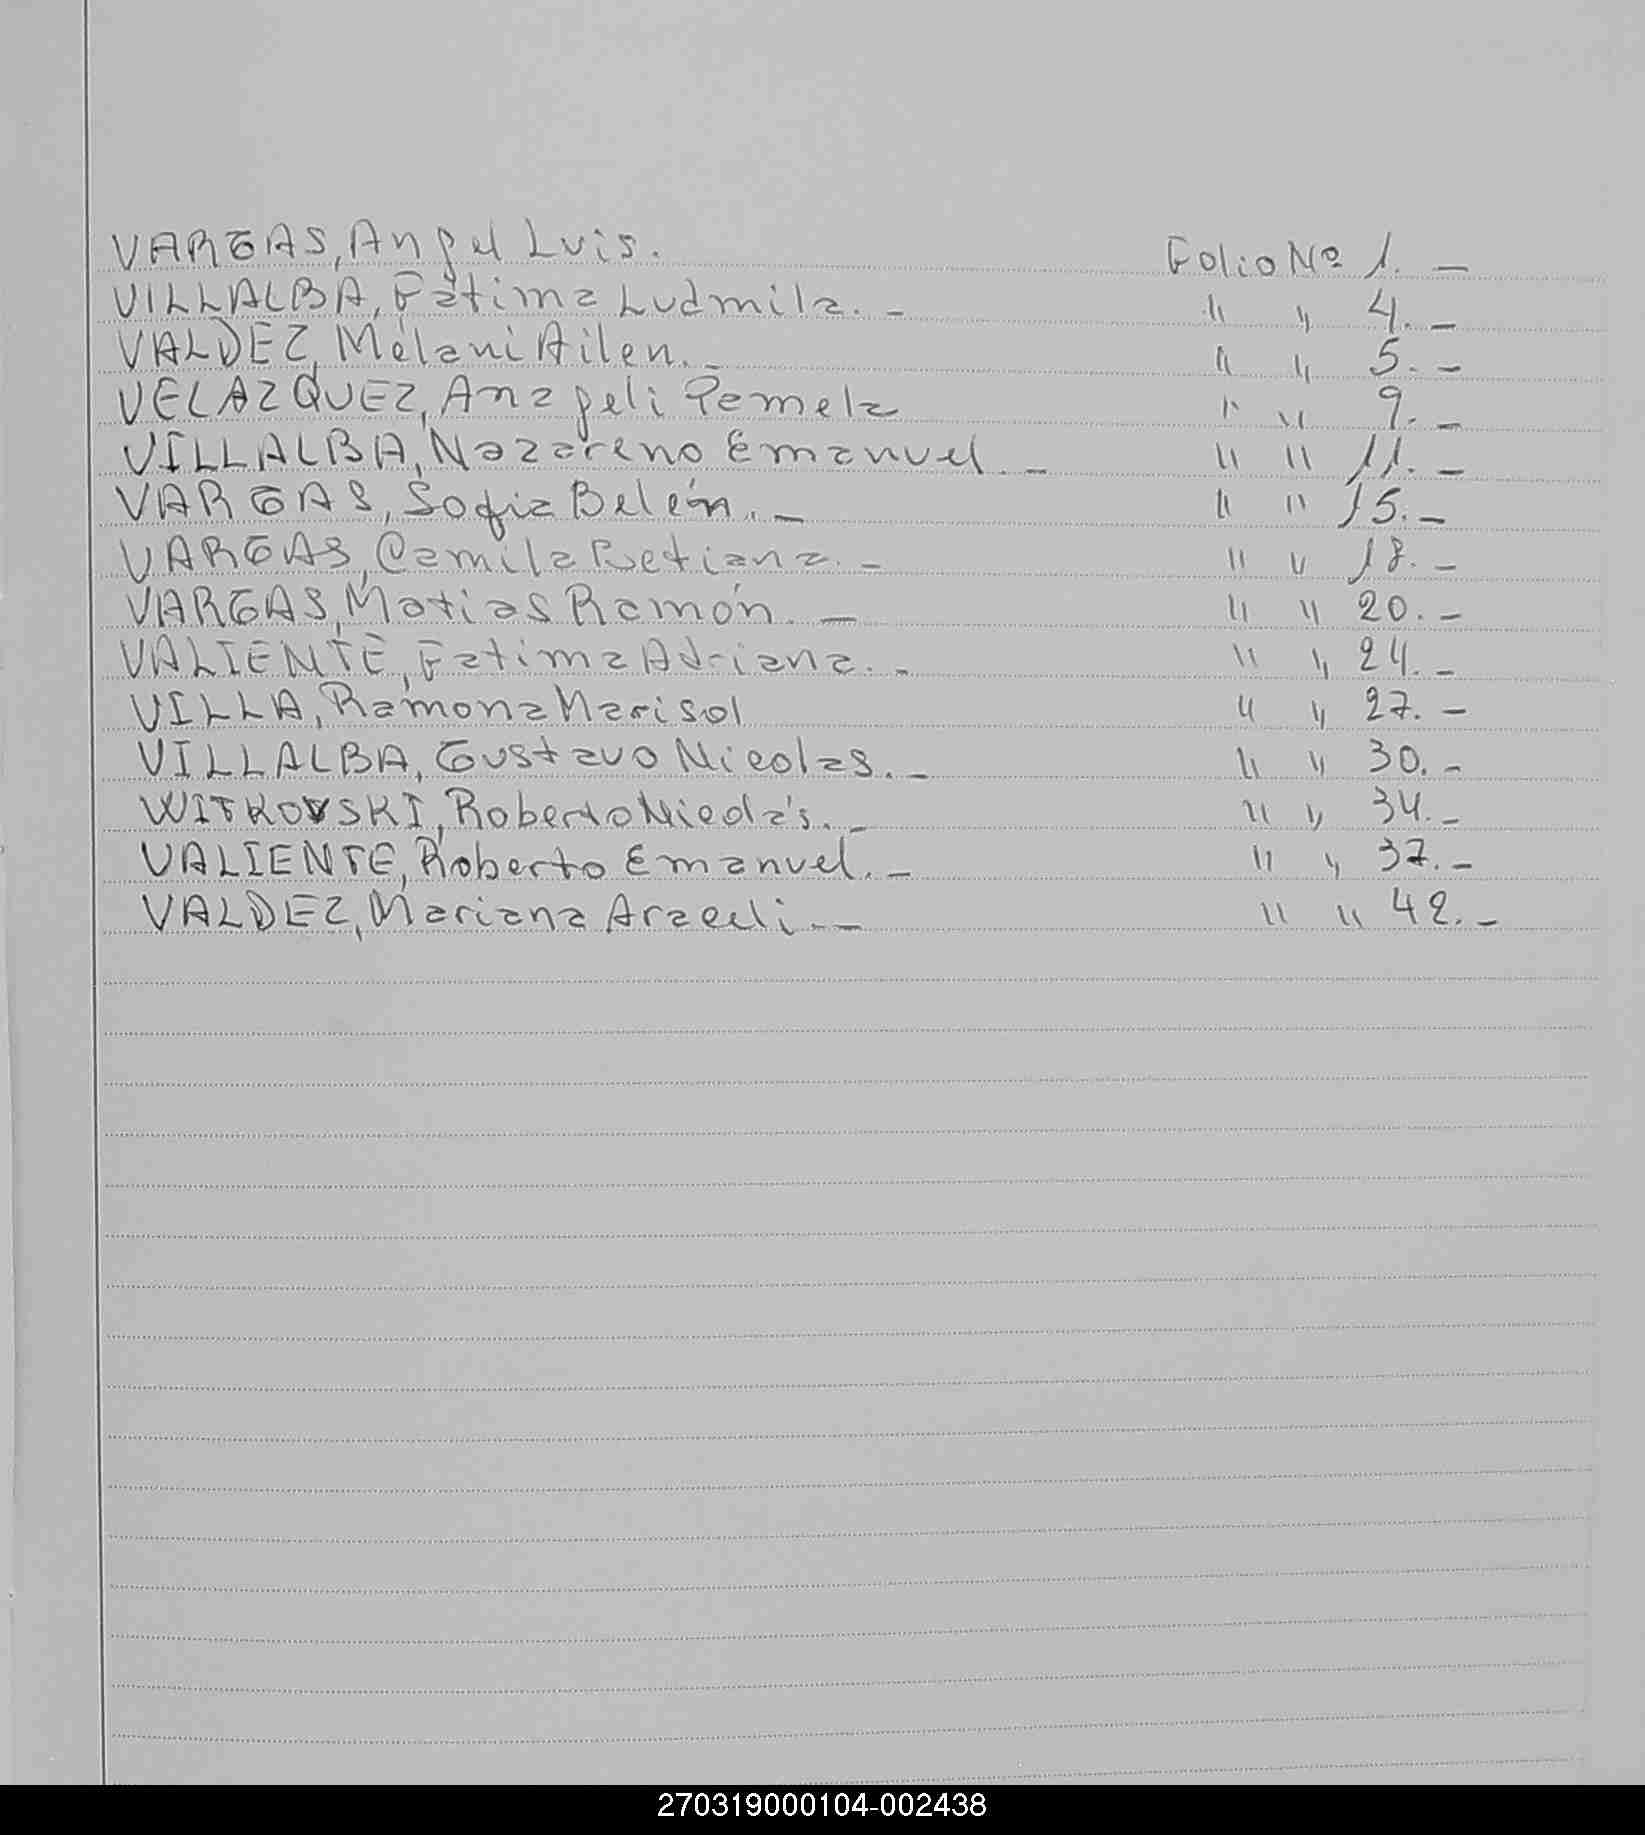 VARGAS, Angel Luis. Folio Nº 1. —
VILLALBA, Fátima Ludmila. — " " 4. —
VALDEZ, Melani Ailen. — " " 5. —
VELAZQUEZ, Anageli Pamela " " 9. —
VILLALBA, Nazareno Emanuel. — " " 11. —
VARGAS, Sofia Belén. — " " 15. —
VARGAS, Camila Betiana. — " " 18. —
VARGAS, Matias Ramón. — " " 20. —
VALIENTE, Fatima Adriana. — " " 24. —
VILLA, Ramona Marisol " " 27. —
VILLALBA, Gustavo Nicolas. — " " 30. —
WITKOVSKI, Roberto Nicolás. — " " 34. —
VALIENTE, Roberto Emanuel. — " " 37. —
VALDEZ, Mariana Araceli. — " " 42. —
270319000104-002438